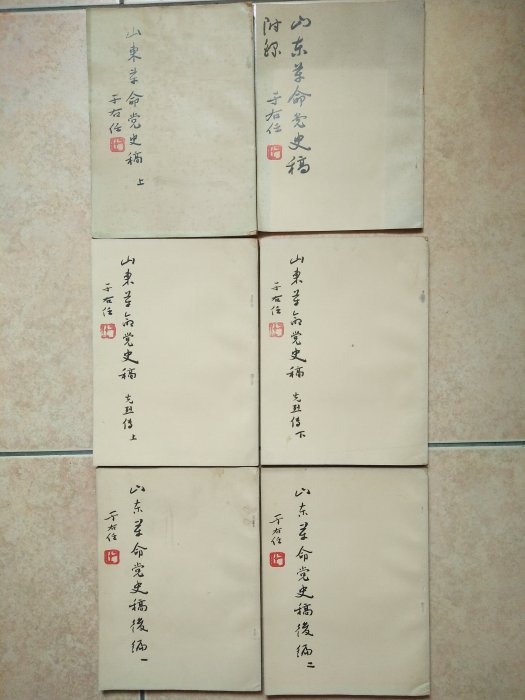 山東革命党史稿 上
于右任
山东革命党史稿
附録
于右任
山東革命党史稿 先烈傳 上
于右任
山東革命党史稿 先烈傳 下
于右任
山东革命党史稿後编 一
于右任
山东革命党史稿後编 二
于右任